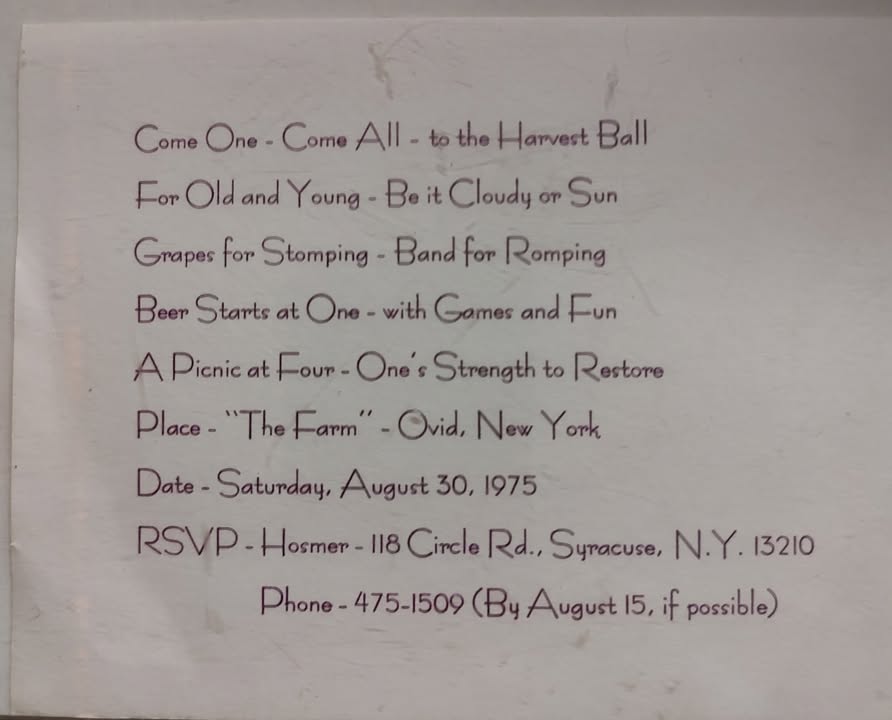 Come One - Come All - to the Harvest Ball
For Old and Young - Be it Cloudy or Sun
Grapes for Stomping - Band for Romping
Beer Starts at One - with Games and Fun
A Picnic at Four - One's Strength to Restore
Place - "The Farm" - Ovid, New York
Date - Saturday, August 30, 1975
RSVP - Hosmer - 118 Circle Rd., Syracuse, N.Y. 13210
Phone - 475-1509 (By August 15, if possible)